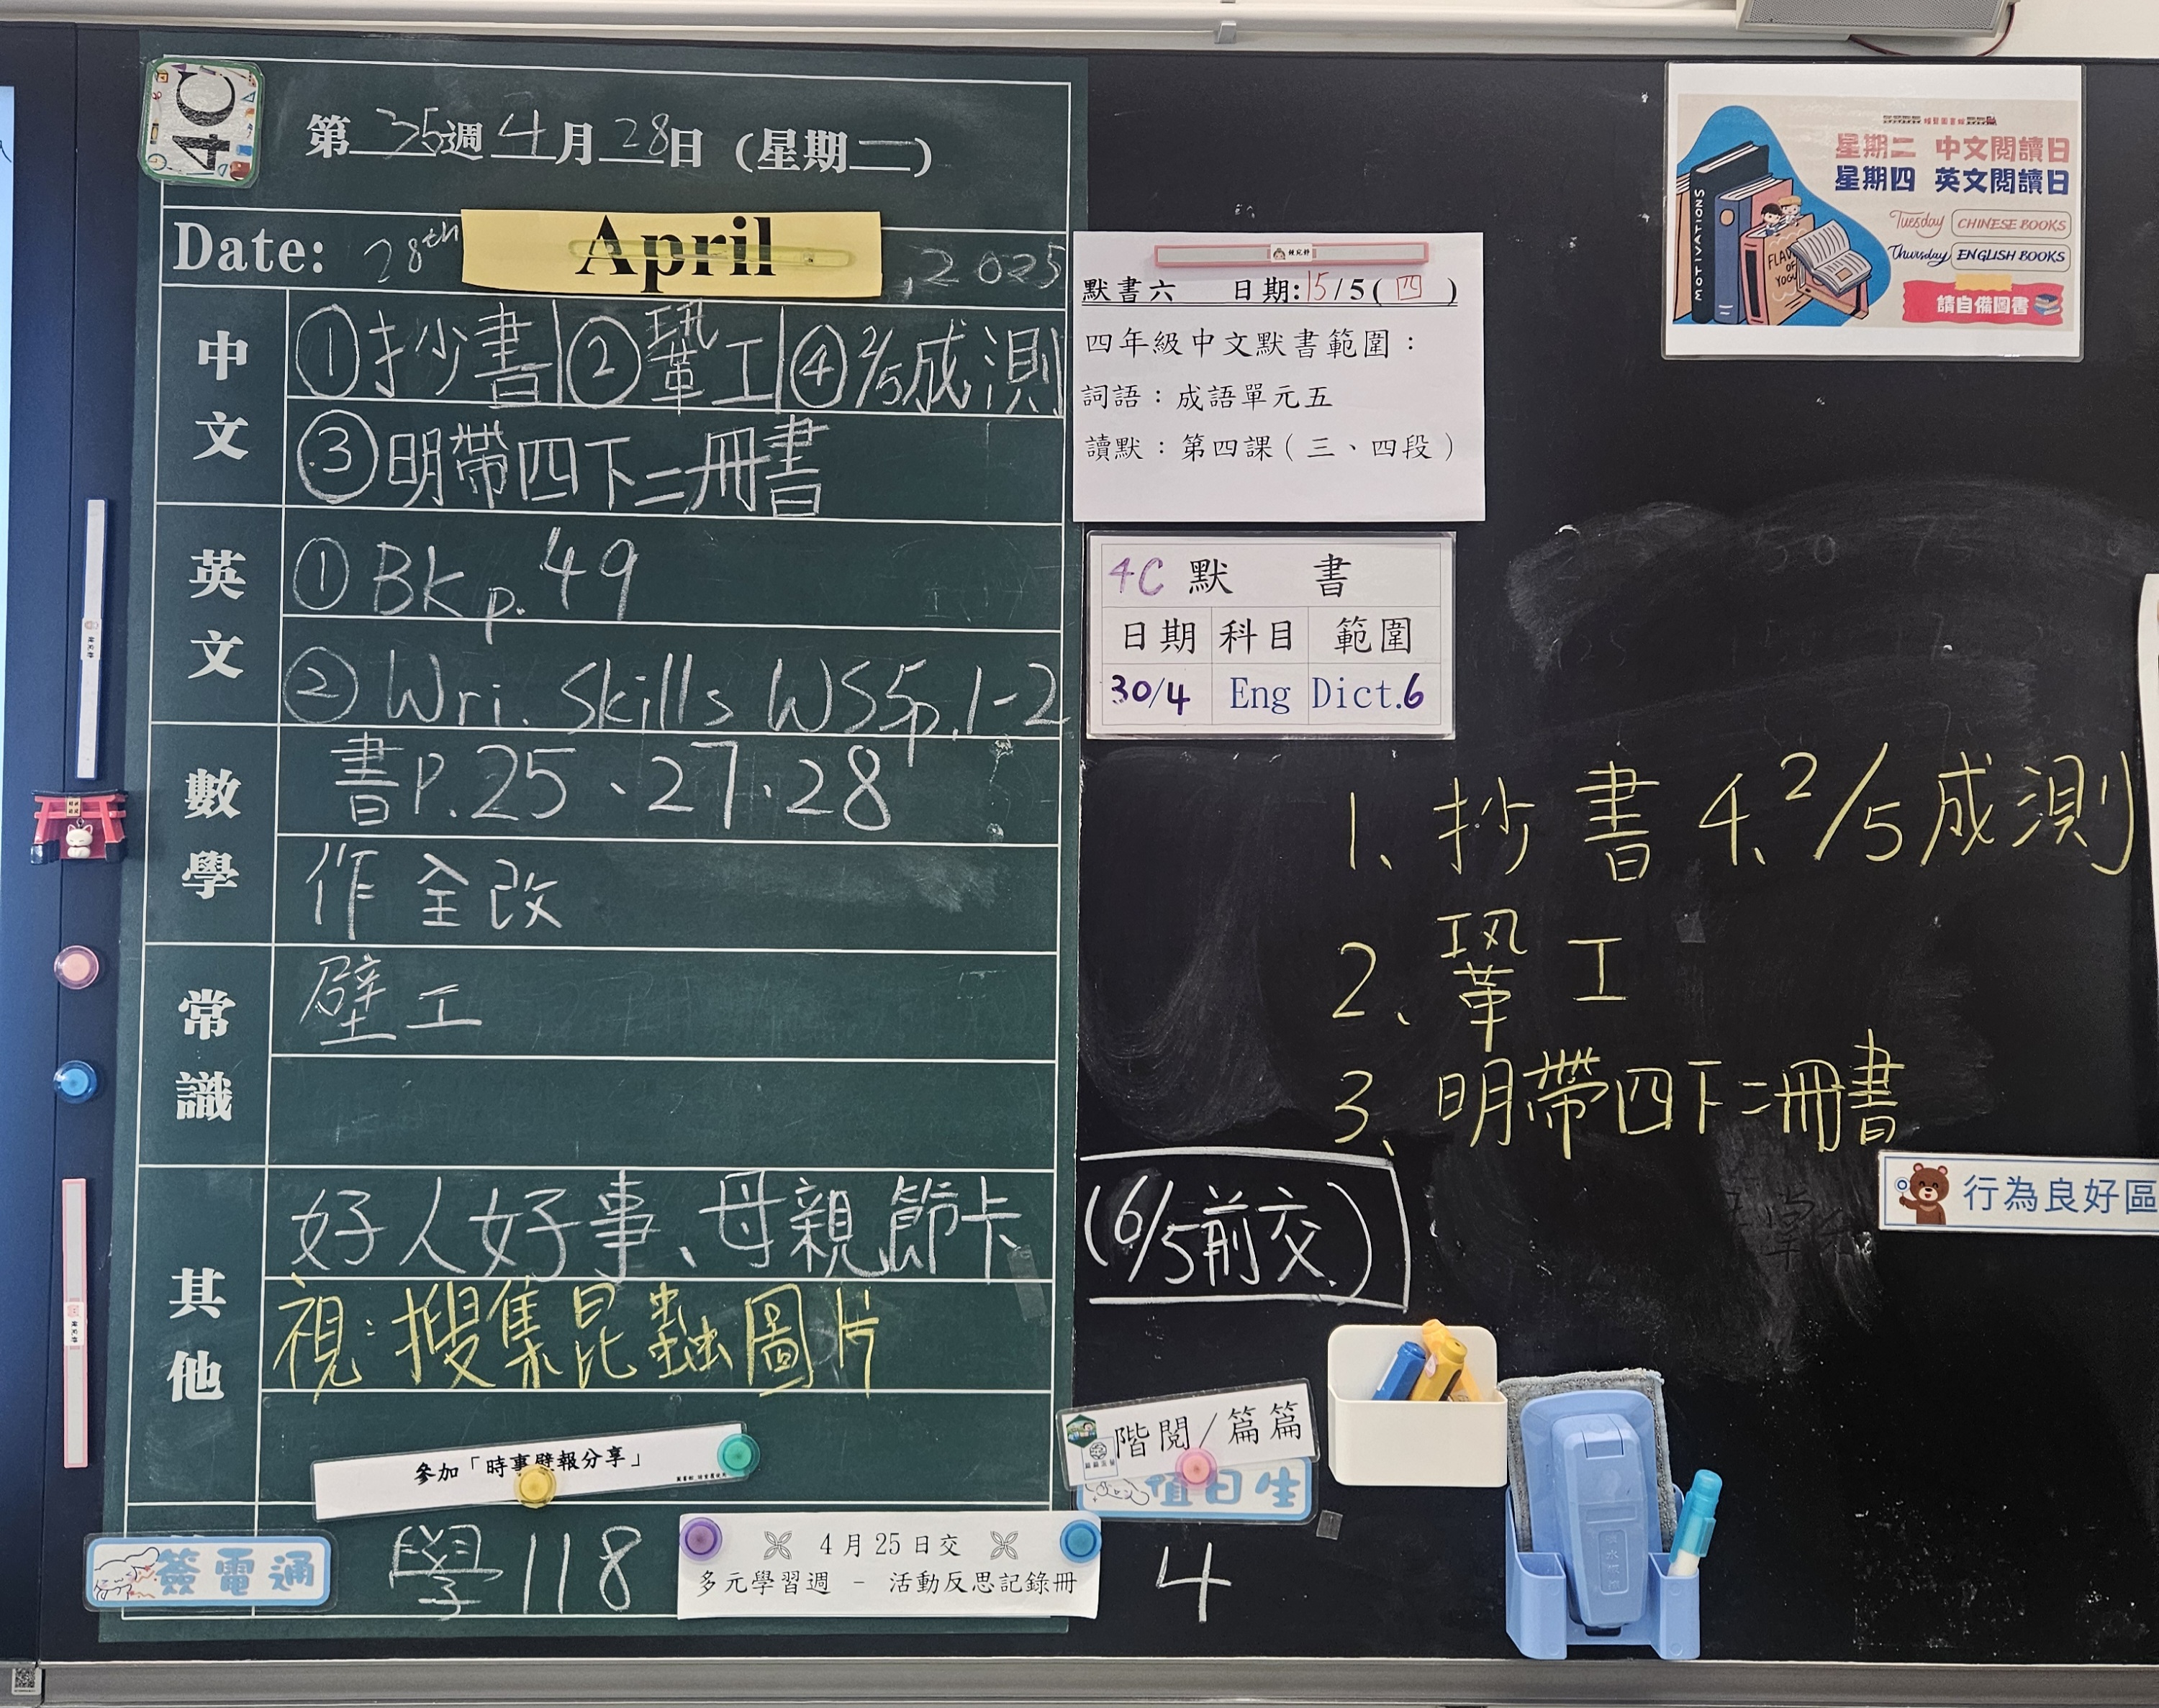 4C
第35週4月28日(星期二)
Date: 28th April, 2025
中文
①抄書 ②鞏工 ④2/5成測
③明帶四下二冊書
英文
①Bk p.49
②Wri. Skills WS5 p.1-2
數學
書P.25、27、28
作 全改
常識
壁工
其他
好人好事、母親節卡
(6/5前交)
視:搜集昆蟲圖片
參加「時事壁報分享」
簽電通
學118
4月25日交
多元學習週 - 活動反思記錄冊
默書六 日期:15/5(四)
四年級中文默書範圍:
詞語:成語單元五
讀默:第四課(三、四段)
4C 默書
日期 科目 範圍
30/4 Eng Dict.6
星期二 中文閱讀日
星期四 英文閱讀日
Tuesday CHINESE BOOKS
Thursday ENGLISH BOOKS
請自備圖書
MOTIVATIONS
1、抄書 4、2/5成測
2、鞏工
3、明帶四下二冊書
行為良好區
階閱/篇篇
值日生
4